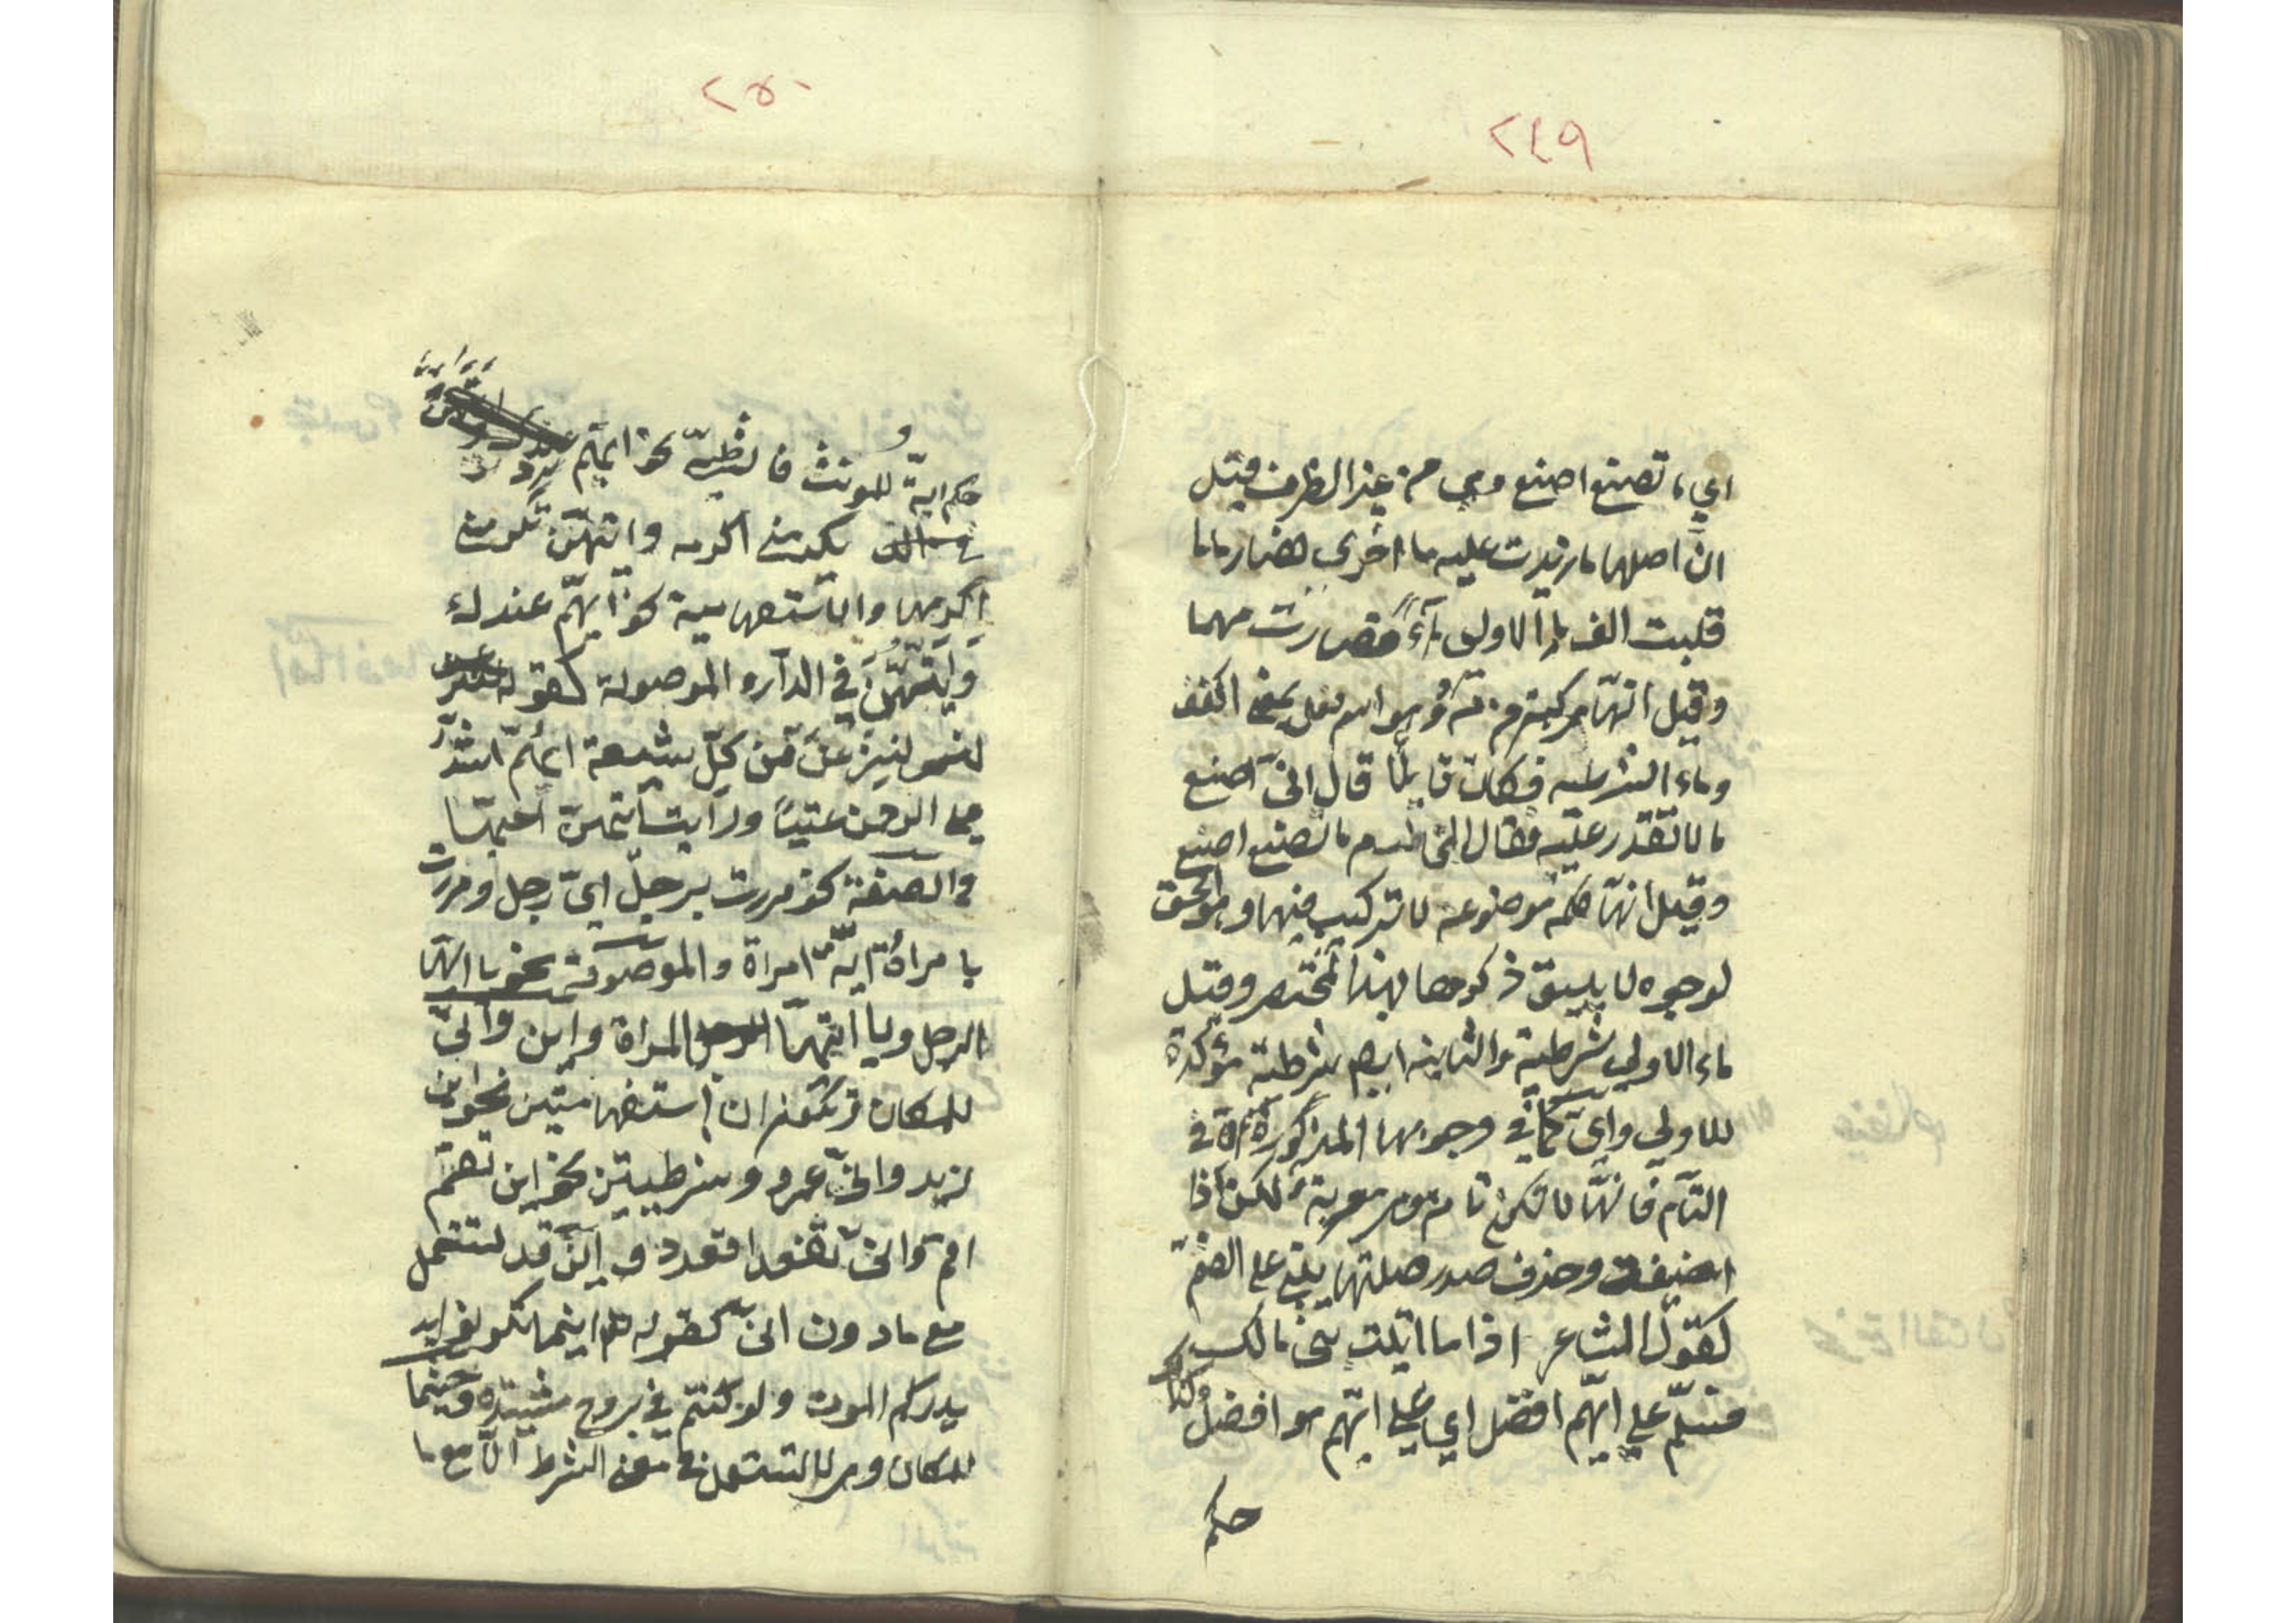 ٢٤٩
اي ما تصنع اصنع وهي من غير الظرف وقيل
انّ اصلها ما زيدت عليه ما اخرى فصار ماما
قلبت الف ما الاولى هآءً فصارت مهما
وقيل انّها مركبة من مَهْ وهو اسم فعل بمعنى اكفف
وماء الشرطيه فكان قايلًا قال انّي اصنع
ما لا تقدر عليه فقال المخاطب مه ما تصنع اصنع
وقيل انّها كلمه موضوعه لا تركيب فيها وهو الحق
لوجوه لا يليق ذكرها بهذا المختصر وقيل
ماء الاولى شرطية والثانيه ايضا شرطية مؤكدة
للاولى وايّ كما في وجوهها المذكورة الّا في
التآم فانّها لا تكون تامه وهي معربة لكن اذا
اضيفت وحذف صدر صلتها يبنى على الضمّ
كقول الشاعر اذا ما اتيت بني مالك
فسلّم على ايّهم افضل اي على ايّهم هو افضل وكذا
حكم
٢٥٠
حكم ايّة للمونث فالشرطيّة نحو ايّهم
يكرمني اكرمه وايّتهنّ تكرمني
اكرمها والاستفهامية نحو ايّهم عندك
وايّتهنّ في الدار والموصولة كقوله
لننزعنّ من كلّ شيعة ايّهم اشدّ
على الرحمن عتيّاً ورايت ايّتهنّ
والصفة نحو مررت برجل ايّ رجل ومررت
بامرأة ايّة امراة والموصوفة نحو يا ايّها
الرجل ويا ايّتها المراة واين وانّى
للمكان وتكونان استفهاميتين نحو اين
زيد وانّى عمرو وشرطيتين نحو اين تقم
اقم وانّى تقعد اقعد واين قد تستعمل
مع ما دون انّى كقوله اينما تكونوا
يدرككم الموت ولو كنتم في بروج مشيّدة وحيثما
للمكان وهي لا تستعمل في معنى الشرط الّا مع ما